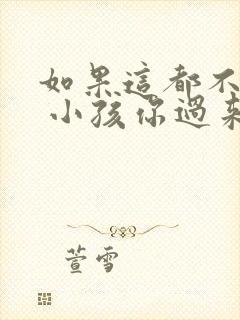 如果這都不
小孩你過來
萱雪